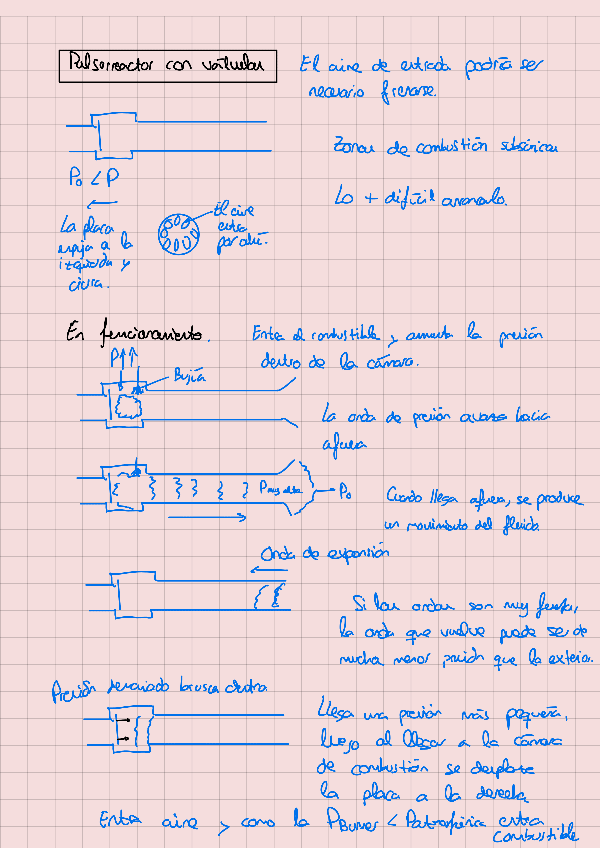 Pulsorreactor con válvulas
El aire de entrada podría ser
necesario frenarse.
Zonas de combustión subsónicas
P₀ < P
Lo + difícil arrancarlo.
La placa
empuja a la
izquierda y
cierra.
El aire
entra
por ahí.
En funcionamiento.
Entra el combustible y aumenta la presión
dentro de la cámara.
P↑↑
Bujía
La onda de presión avanza hacia
afuera
P muy alta
P₀
Cuando llega afuera, se produce
un movimiento del fluido.
Onda de expansión
Si las ondas son muy fuertes,
la onda que vuelve puede ser de
mucha menor presión que la exterior.
Presión demasiado brusca dentro
Llega una presión más pequeña,
luego al llegar a la cámara
de combustión se desplaza
la placa a la derecha
Entra aire y como la P Burner < P atmosférica entra
combustible